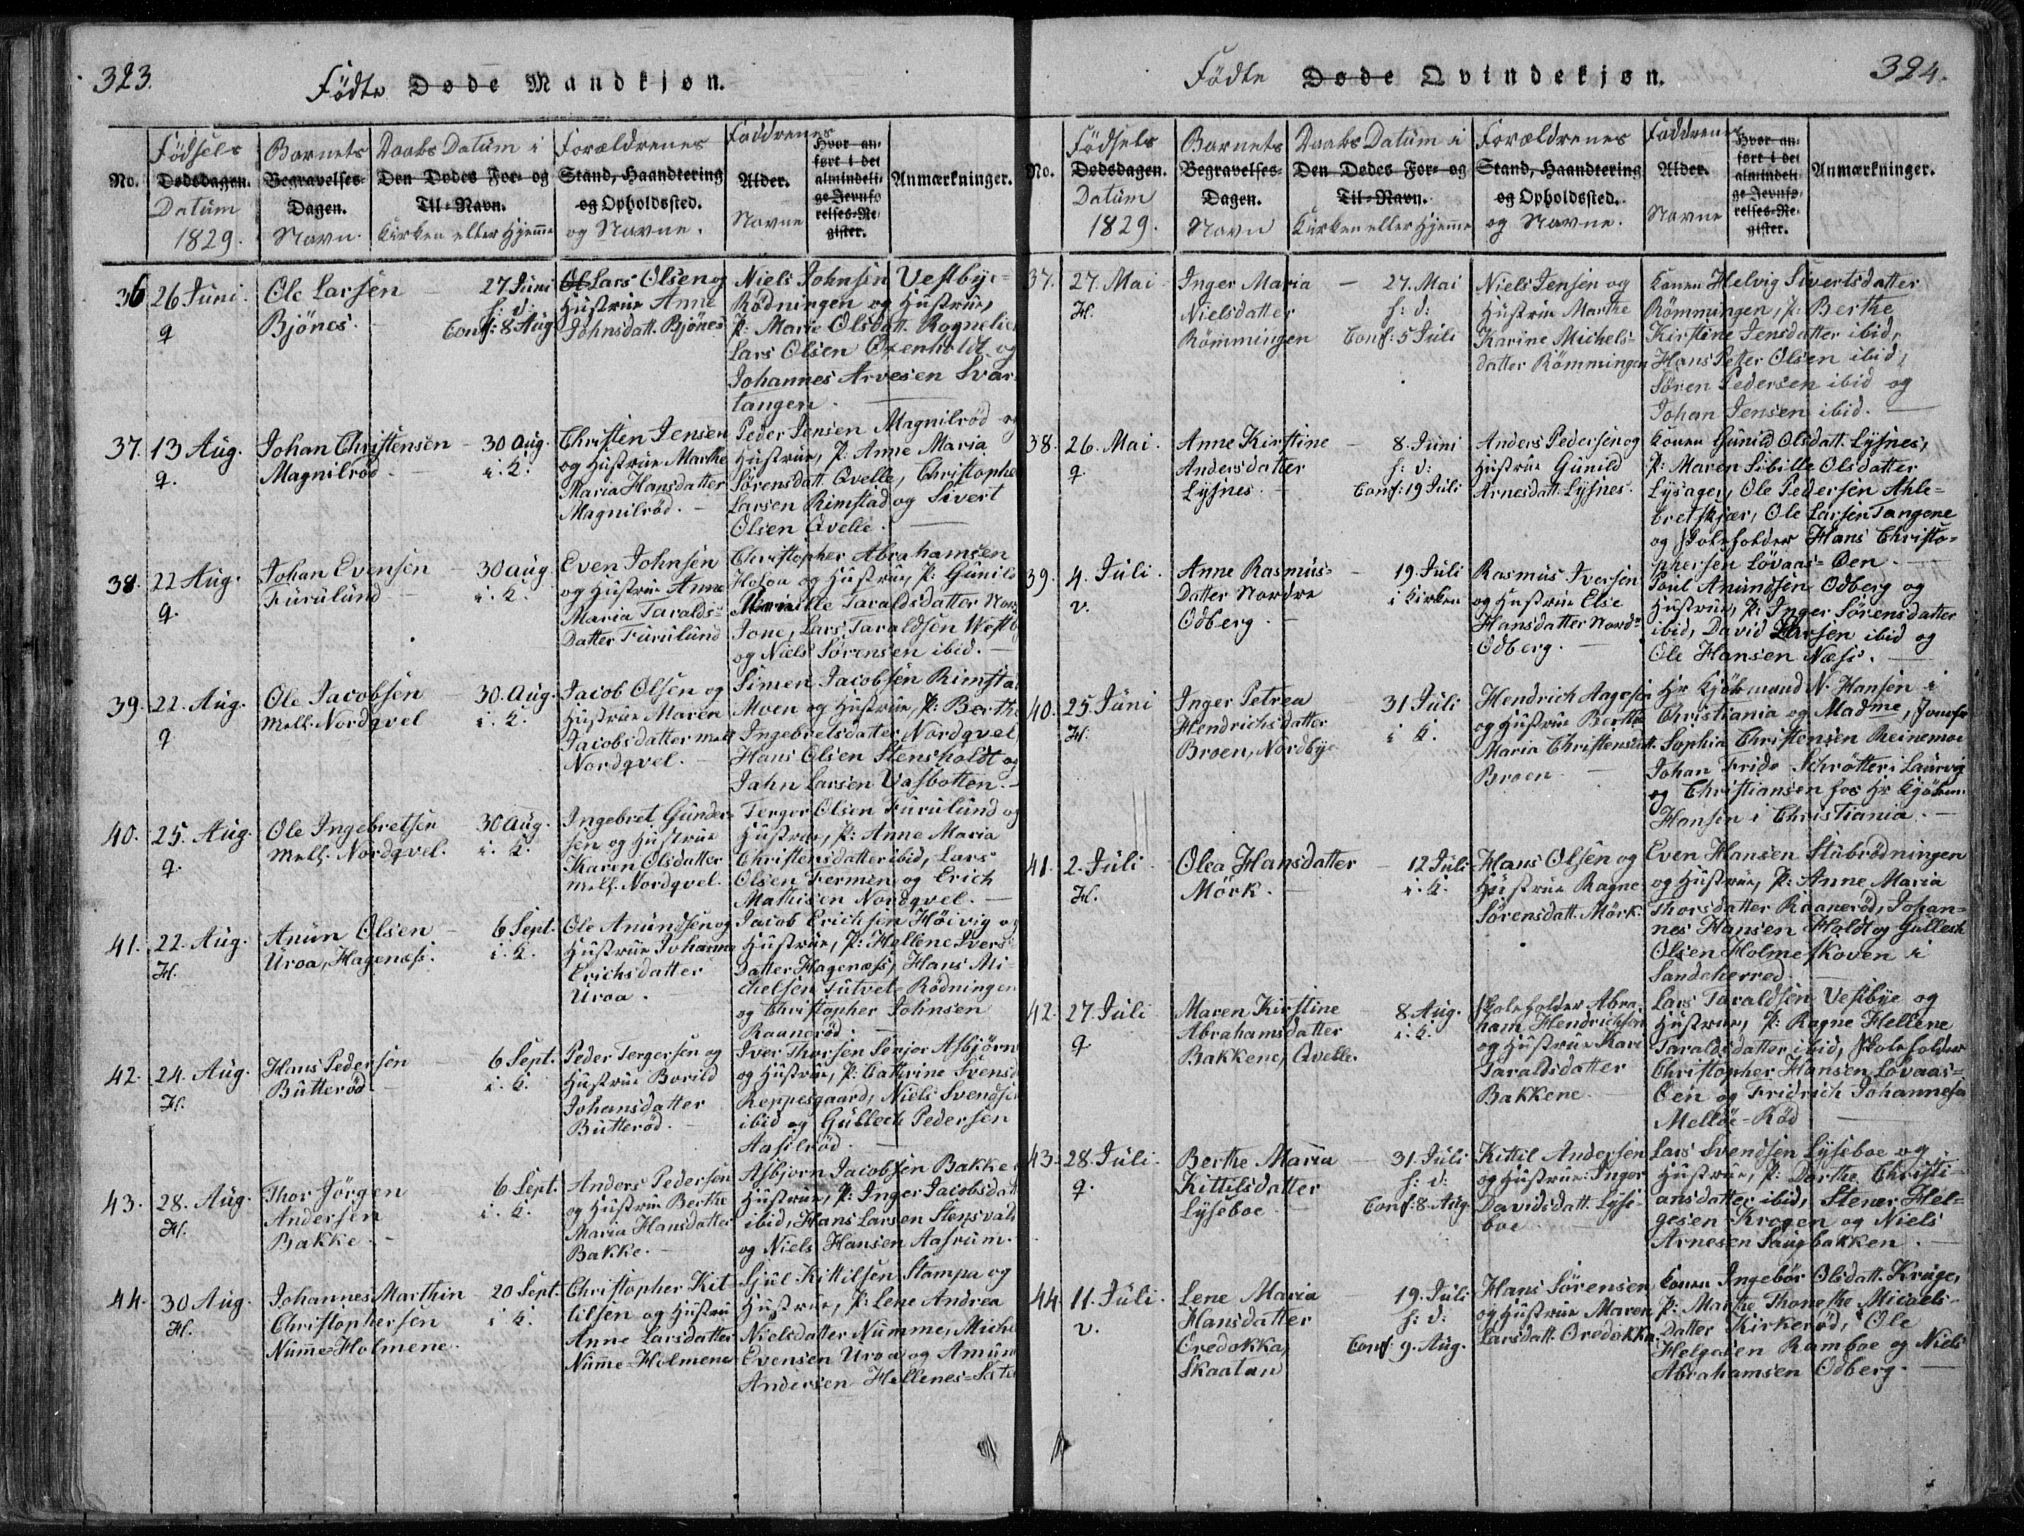 323.
Födte Døde Mandkjøn.
No.
Födsels
Dødsdagen.
Datum
1829.
Barnets
Begravelses-
Dagen.
Navn.
Daabs Datum i
Den Dødes For- og
Til-Navn.
Kirken eller Hjemme
Forældrenes
Stand, Haandtering
og Opholdssted.
og Navne.
Faddrenes
Alder.
Navne
Hvor an-
ført i det
almindeli-
ge Jevnfø-
relses-Re-
gister.
Anmærkninger.
36
26 Juni.
q
Ole Larsen
Bjönes.
27 Juni
h: d:
Conf: 8 Aug
Lars Olsen og
Hustrue Anne
Johnsdatt. Bjönes
Niels Johnsen Vestbye-
Rödningen og Hustrue,
P: Marie Olsdatt. Rognelie
Lars Olsen Oxenholdt og
Johannes Arvesen Svar
tangen.
37.
13 Aug.
q.
Johan Christensen
Magnilröd.
30 Aug.
i. K.
Christen Jensen
og Hustrue Marthe
Maria Hansdatter
Magnilröd.
Peder Jensen Magnilröd og
Hustrue, P: Anne Maria
Sörensdatt. Qvelle, Christophe
Larsen Rimstad og Sivert
Olsen Qvelle.
38.
22 Aug.
q.
Johan Evensen
Furulund
30 Aug
i. K.
Even Johnsen
og Hustrue Anne
Maria Taralds-
datter Furulund
Christopher Abrahamsen
og Hustrue, P: Gunild
Taraldsdatter
Jone, Lars Taraldsen Vestb
og Niels Sörensen ibid.
39.
22. Aug.
q
Ole Jacobsen
Mell. Nordqvel
30. Aug.
i. K.
Jacob Olsen og
Hustrue Maren
Jacobsdatter Mell
Nordqvel.
Simen Jacobsen Rimsta
Moen og Hustrue, P: Berthe
Ingebretsdatter Nordqvel
Hans Olsen Stensholdt og
Jahn Larsen Vasbotten.
40.
25. Aug.
q.
Ole Ingebretsen
Mell. Nordqvel.
30 Aug.
i. K.
Ingebret Gunder-
sen og Hustrue
Karin Olsdatter
Mell. Nordqvel.
Terger Olsen Furulund og
Hustrue, P: Anne Maria
Christensdatter ibid, Lars
Olsen Fermen og Erich
Mathisen Nordqvel.
41.
22. Aug.
H.
Anun Olsen
Uroa, Hagenæss.
6 Sept.
i. K.
Ole Amundsen og
Hustrue Johanne
Erichsdatter
Uroa.
Jacob Erichsen Höivig og
Hustrue, P: Hellene Ivers
datter Hagenæss, Hans Mi-
chelsen Tutvet-Rödningen
og Christopher Johnsen
Raaneröd.
42.
24. Aug.
H.
Hans Pedersen
Butteröd.
6 Sept.
i. K.
Peder Tergersen og
Hustrue Borild
Johansdatter
Butteröd.
Iver Thorsen Senjor Asbjörn
og Hustrue, P: Cathrine Svensd
Reppesgaard, Niels Svendsen
ibid og Gullech Pedersen
Aasilröd.
43.
28. Aug.
H.
Thor Jörgen
Andersen
Bakke.
6 Sept.
i. K.
Anders Pedersen
og Hustrue Berthe
Maria Hansdatter
Bakke.
Asbjorn Jacobsen Bakke
Hustrue, P: Inger Jacobsdatt
ibid, Hans Larsen Stensvall
og Niels Hansen Aasrum.
44.
30 Aug.
H.
Johannes Marthin
Christophersen
Numme-Holmene.
20 Sept.
i K.
Christopher Kit
tilsen og Hustru
Anne Larsdatter
Numme-Holmene
Sjul Kittilsen Stampa og
Hustrue, P: Lene Andrea
Nielsdatter Numme, Miche
Evensen Uroa og Amun
Andersen Hellenes-Sete
324.
Födte Døde Qvindekjøn.
No.
Födsels
Dødsdagen.
Datum
1829.
Barnets
Begravelses-
Dagen.
Navn
Daabs Datum i
Den Dødes For- og
Til-Navn.
Kirken eller Hjemme
Forældrenes
Stand, Haandtering
og Opholdssted.
og Navne.
Faddrenes
Alder.
Navne
Hvor an-
ført i det
almindeli-
ge Jevnfø-
relses-Re-
gister.
Anmærkninger.
37.
27. Mai
H.
Inger Maria
Nielsdatter
Römmingen
27. Mai
h: d:
Conf: 5 Juli
Niels Jensen og
Hustrue Marthe
Karine Michels-
datter Römmingen
Konen Helvig Sivertsdatter
Römmingen, P: Berthe
Kirstine Jensdatter ibid,
Hans Petter Olsen ibid,
Sören Pedersen ibid og
Johan Jensen ibid.
38.
26. Mai.
q.
Anne Kirstine
Andersdatter
Lysnes.
8. Juni
h: d:
Conf: 19 Juli
Anders Pedersen og
Hustrue Gunild
Arnesdatt. Lysnes.
Konen Gunild Olsdatt. Lysnes,
P: Maren Sibille Olsdatter
Lysager, Ole Pedersen Ahle-
bretskjær, Ole Larsen Tangene
og Skoleholder Hans Christo-
phersen Lövaas-Oen.
39.
4. Juli.
v.
Anne Rasmus-
datter Nordre
Odberg.
19. Juli
i Kirken
Rasmus Iversen
og Hustrue Else
Hansdatter Nord-
Odberg.
Poul Amundsen Odberg og
Hustrue, P: Inger Sörensdatter
ibid, David Larsen ibid og
Ole Hansen Næss.
40.
25. Juni
H.
Inger Petrea
Hendrichsdatter
Broen, Nordbye
31. Juli
i K.
Hendrich Aagesen
og Hustrue Berthe
Maria Christensdatt.
Broen.
Hr Kjöbmand N. Hansen i
Christiania og Madme, Jomfr
Sophia Christensen Reinemoe
Johan Fride Schrötter i Laurvig
og Christiansen hos Hr Kjöbm.
Hansen i Christiania.
41.
2. Juli
H.
Olea Hansdatter
Mörk.
12 Juli
i. K.
Hans Olsen og
Hustrue Ragne
Sörensdatt. Mörk.
Even Hansen Stubrödningen
og Hustrue, P: Anne Maria
Thorsdatter Raaneröd, Johan-
nes Hansen Holdt og Gullech
Olsen Holmeskoven i
Sandeherred.
42.
27. Juli
q
Maren Kirstine
Abrahamsdatter
Bakkene, Qvelle.
8 Aug.
i. K.
Skoleholder Abra-
ham Hendrichsen
og Hustrue Kari
Taraldsdatter
Bakkene.
Lars Taraldsen Vestbye og
Hustrue, P: Ragne Hellene
Taraldsdatter ibid, Skoleholder
Christopher Hansen Lövaas-
Oen og Fridrich Johannesen
Melløe-Röd
43.
28. Juli.
q.
Berthe Maria
Kittilsdatter
Lyseboe.
31. Juli
h: d:
Conf: 8. Aug.
Kittil Andersen
og Hustrue: Inger
Davidsdatt. Lyse-
boe
Lars Svendsen Lyseboe og
Hustrue, P: Dorthe Christi-
ansdatter ibid, Stener Hel-
gesen Krogen og Niels
Arnesen Saugbakken.
44.
11. Juli.
v.
Lene Maria
Hansdatter
Oredokka
Skaatan
19. Juli
h: d:
Conf: 9. Aug.
Hans Sörensen
og Hustrue Maren
Larsdatt. Oredokka
Konen Ingebör Olsdatt. Kruge,
P: Marthe Thonethe Micaels-
datter Kirkeröd, Ole
Helgesen Ramboe og Niels
Abrahamsen Odberg.